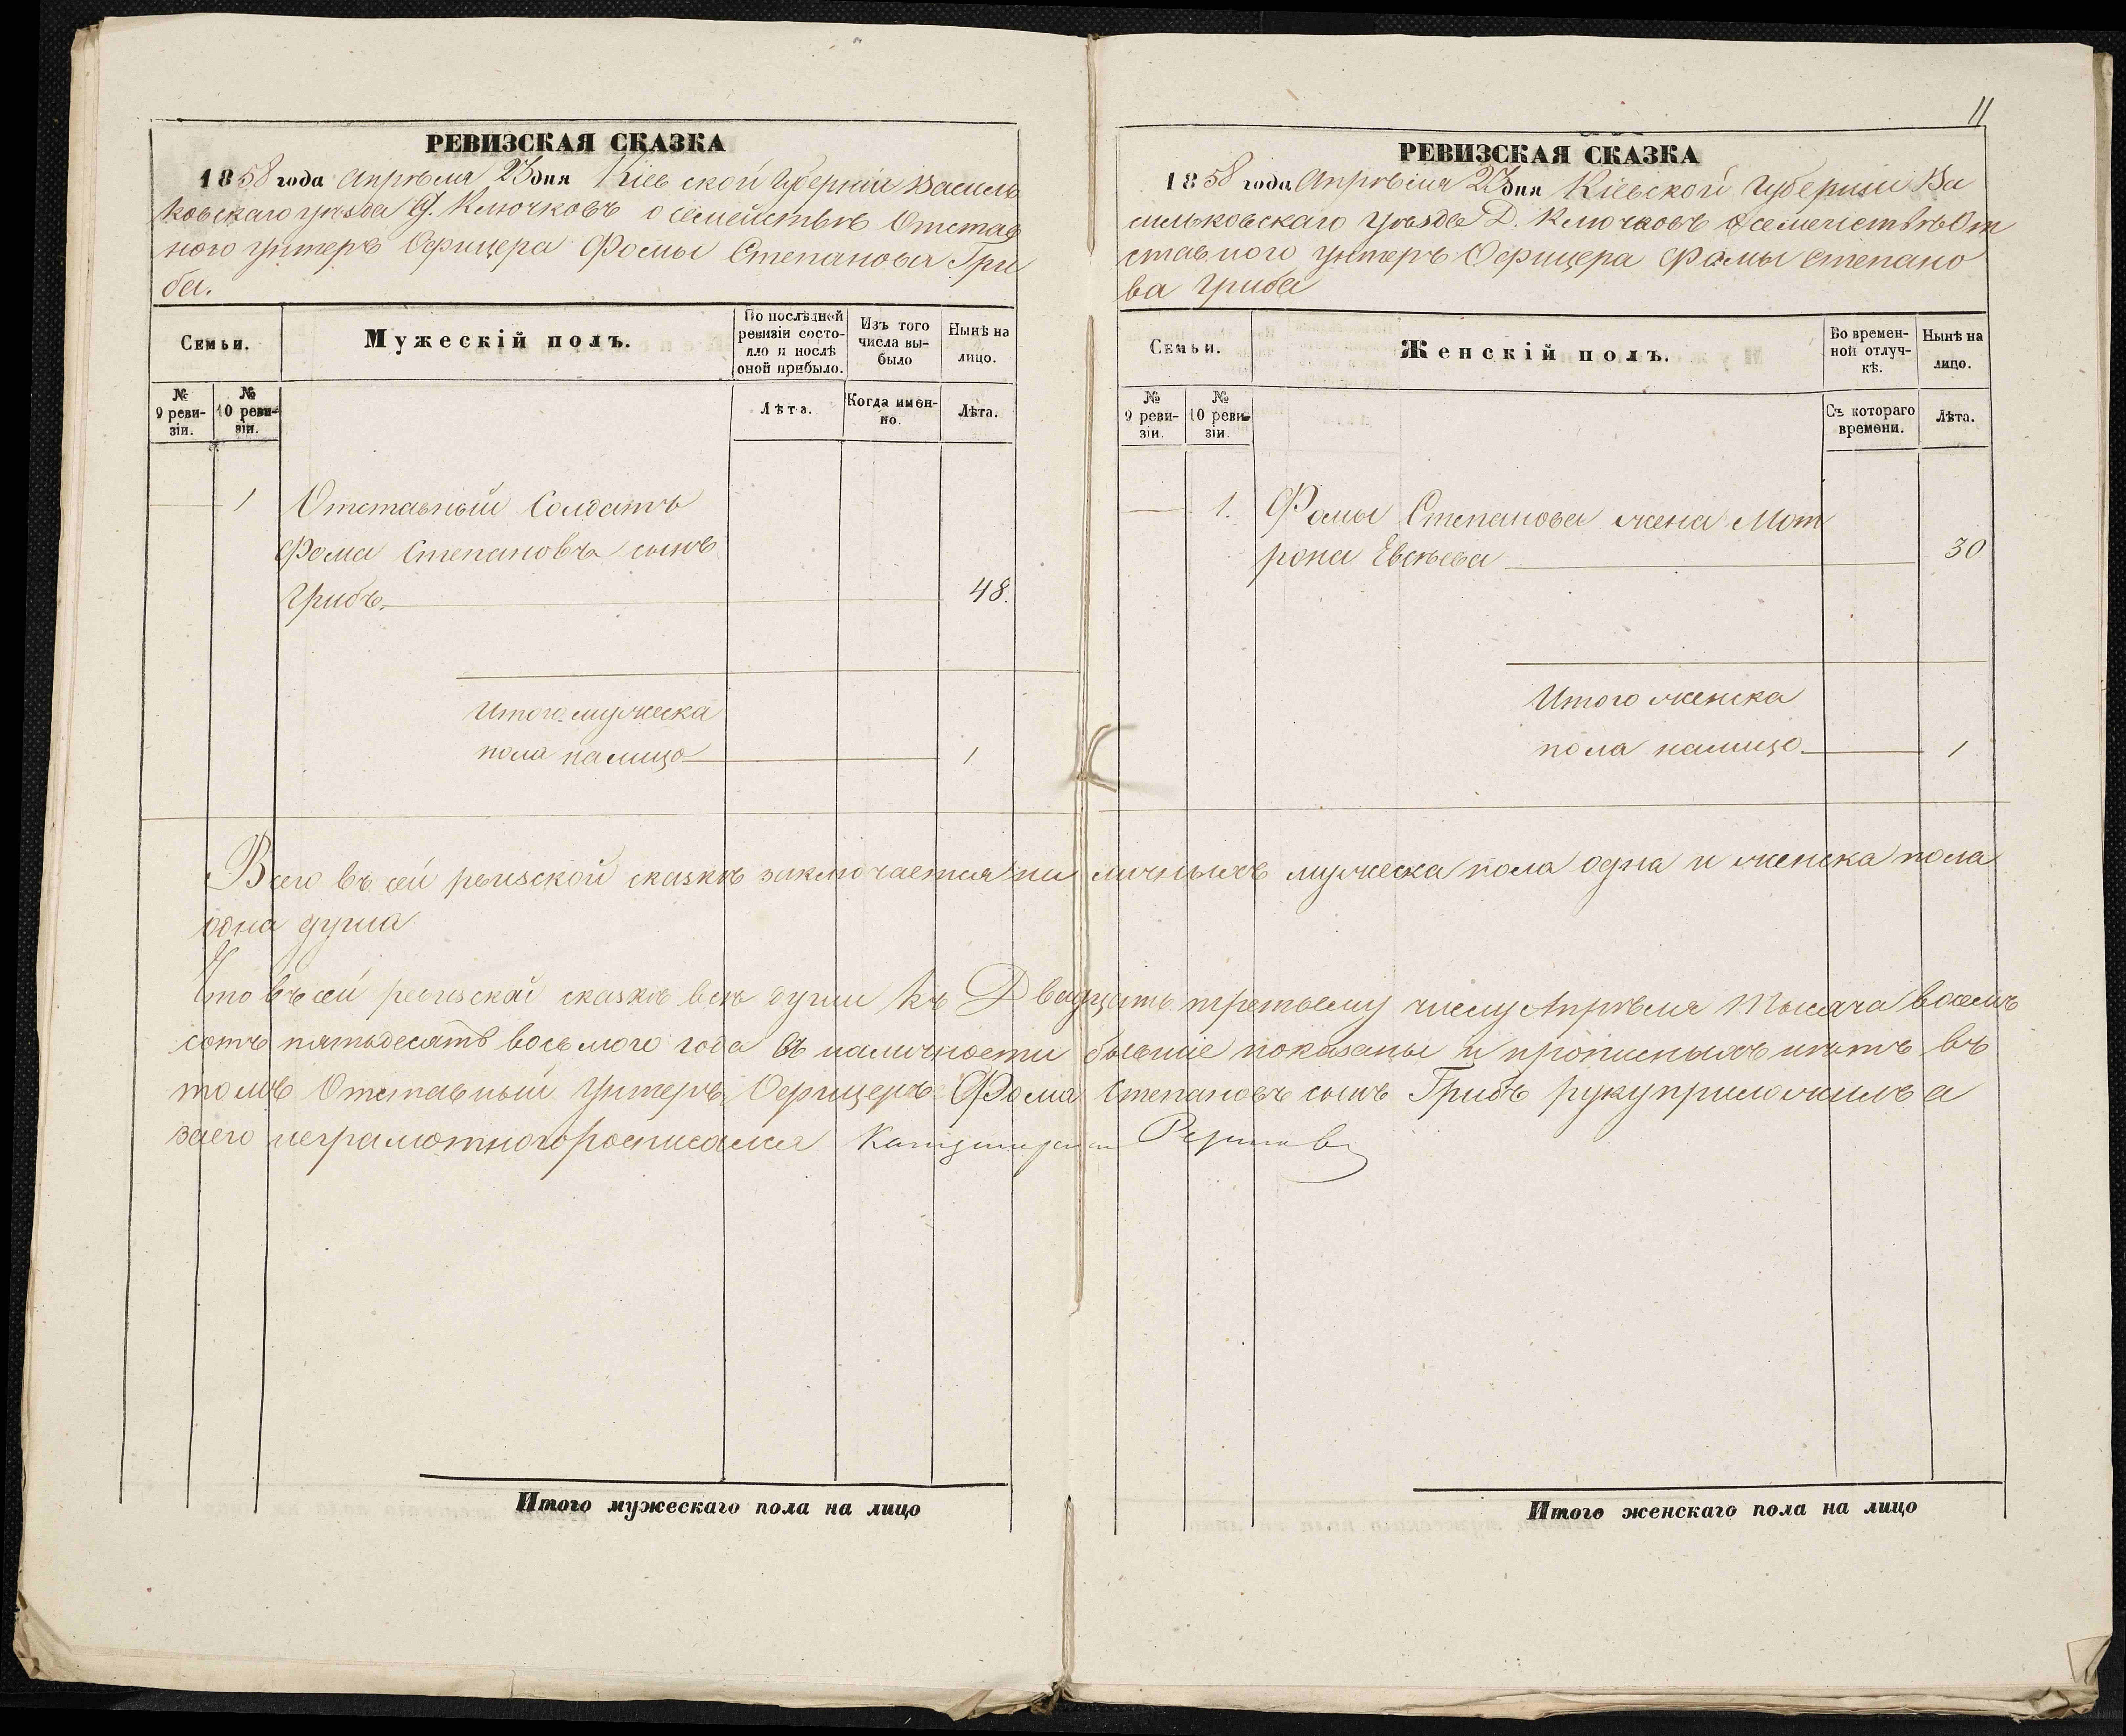 11
РЕВИЗСКАЯ СКАЗКА
1858 года Апрѣля 23 дня Кіевской Губерніи Василь
ковскаго уѣзда Д. Ключковъ о семействѣ Отстав
ного унтеръ Офицера Фомы Степанова Гри
ба.
Семьи.
Мужескій полъ.
По послѣдней ревизіи состояло и послѣ оной прибыло.
Изъ того числа выбыло
Нынѣ на лицо.
№ 9 ревизіи.
№ 10 ревизіи.
Лѣта.
Когда именно.
Лѣта.
1 Отставный Солдатъ
Фома Степановъ сынъ
Грибъ. 48.
Итого мужеска
пола налицо 1
РЕВИЗСКАЯ СКАЗКА
1858 года Апрѣля 23 дня Кіевской Губерніи Ва
сильковскаго уѣзда Д. Ключковъ о семействѣ От
ставного унтеръ Офицера Фомы Степано
ва Гриба
Семьи.
Женскій полъ.
Во временной отлучкѣ.
Нынѣ на лицо.
№ 9 ревизіи.
№ 10 ревизіи.
Съ котораго времени.
Лѣта.
1. Фомы Степанова жена Мот
рона Евсѣева 30
Итого женска
пола налицо 1
Всего въ сей ревизской сказкѣ заключается на личныхъ мужеска пола одна и женска пола
одна душа
Что въ сей ревизской сказкѣ всѣ души къ Двадцать третьему числу Апрѣля Тысяча восемъ
сотъ пятьдесятъ восьмого года въ наличности бывшіе показаны и прописныхъ нѣтъ въ
томъ Отставный Унтеръ Офицеръ Фома Степановъ сынъ Грибъ руку приложилъ а
за его неграмотного росписался
Итого мужескаго пола на лицо
Итого женскаго пола на лицо